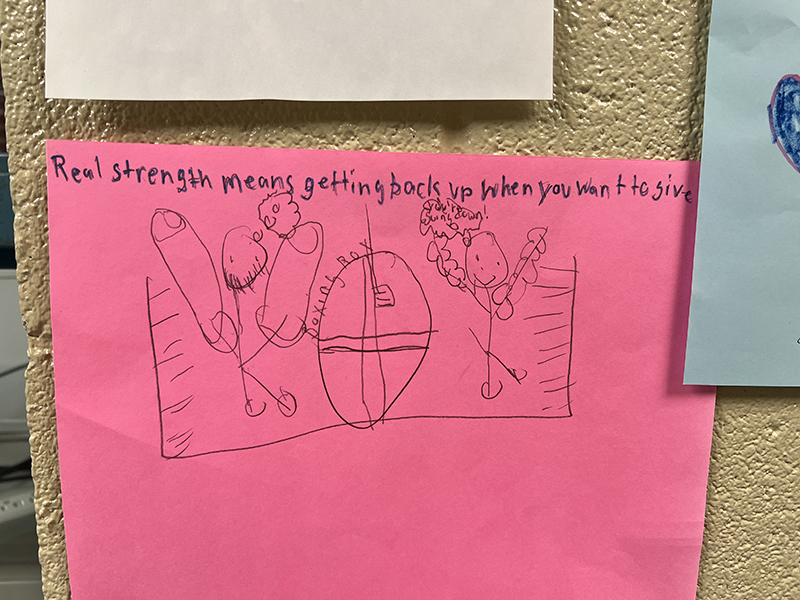 Real strength means getting back up when you want to give
you're
going down!
Boxing Rox